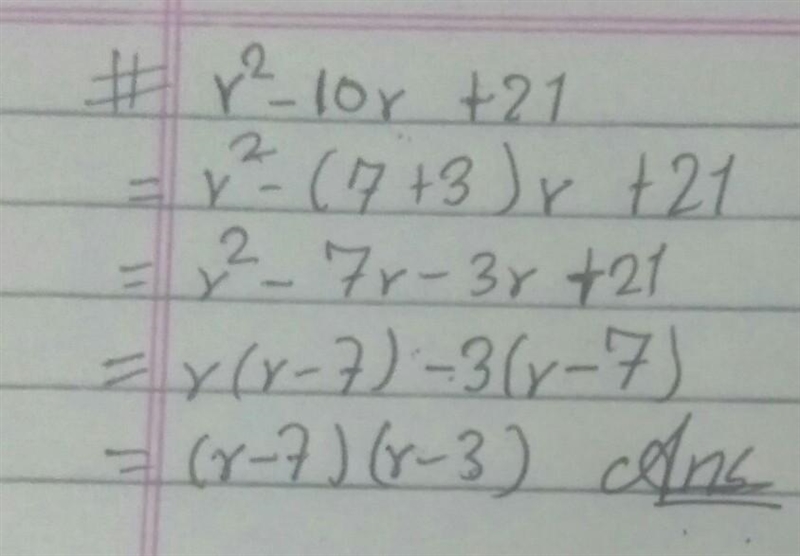 # r² - 10r + 21
= r² - (7 + 3)r + 21
= r² - 7r - 3r + 21
= r(r - 7) - 3(r - 7)
= (r - 7)(r - 3) Ans